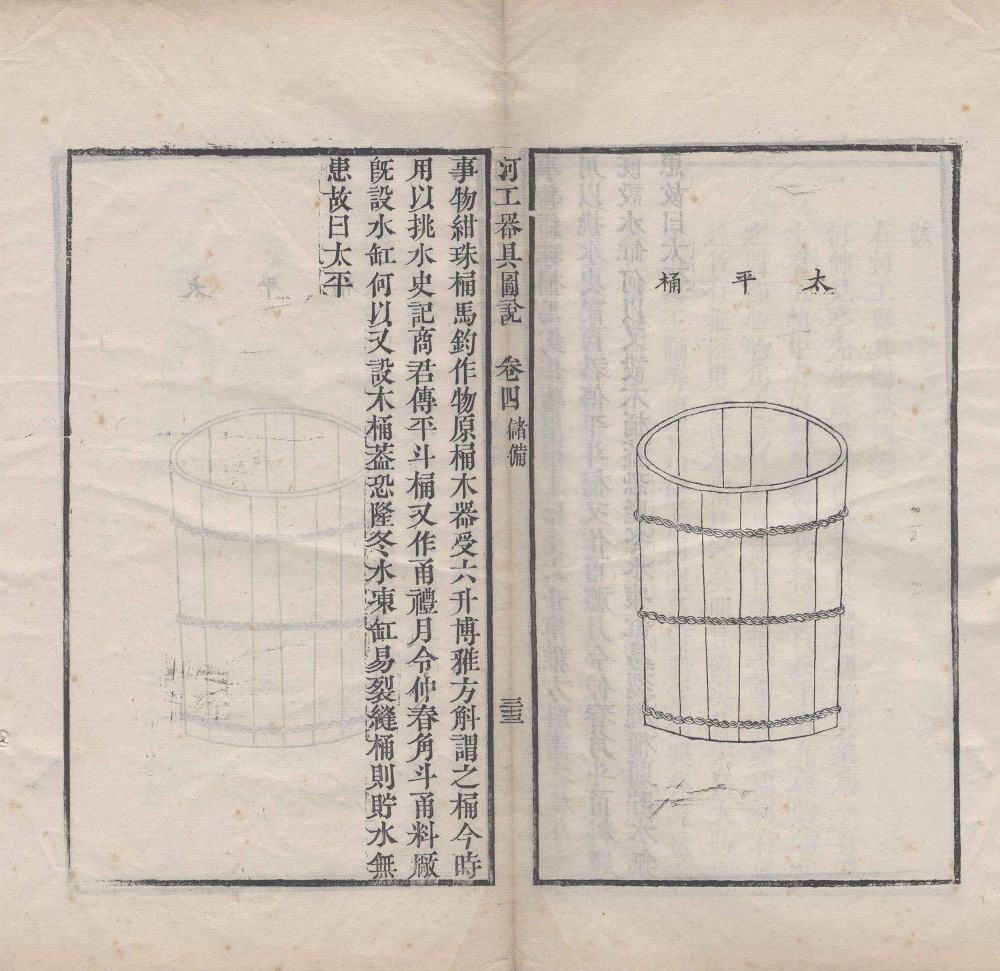 太平桶
河工器具圖說 卷四 儲備 三三
事物紺珠桶馬鈞作物原桶木器受六升博雅方斛謂之桶今時
用以挑水史記商君傳平斗桶又作甬禮月令仲春角斗甬料廠
旣設水缸何以又設木桶蓋恐隆冬水凍缸易裂縫桶則貯水無
患故曰太平